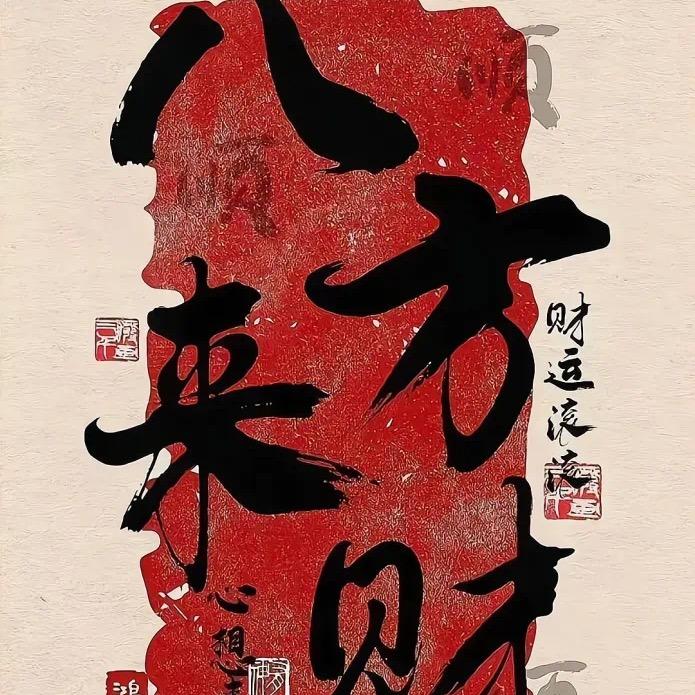 八方
来财
顺
顺
财运滚滚
心想
鸿